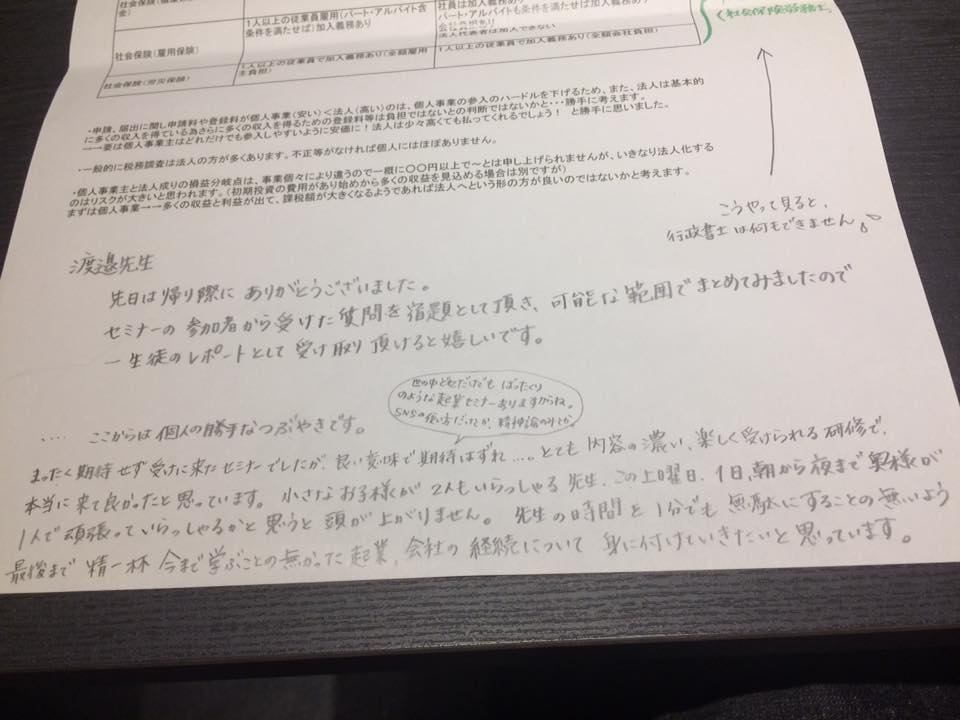 社会保険(健康
金)
1人以上の従業員雇用(パート・アルバイト含
条件を満たせば)加入義務あり
社員は加入義務あり
パート・アルバイトも条件を満たせば加入義務
社会保険(雇用保険)
法人代表者は加入できない
社会保険(労災保険)
1人以上の従業員で加入義務あり(全額雇用
主負担)
1人以上の従業員で加入義務あり(全額会社負担)
社会保険労務士
・申請、届出に関し申請料や登録料が個人事業(安い)<法人(高い)のは、個人事業の参入のハードルを下げるため、また、法人は基本的
に多くの収入を得ている為さらに多くの収入を得るための登録料等は負担ではないとの判断ではないかと・・・勝手に考えます。
→一要は個人事業主はどれだけでも参入しやすいように安価に!法人は少々高くても払ってくれるでしょう! と勝手に思いました。
・一般的に税務調査は法人の方が多くあります。不正等がなければ個人にはほぼありません。
・個人事業主と法人成りの損益分岐点は、事業個々により違うので一概に〇〇円以上で~とは申し上げられませんが、いきなり法人化する
のはリスクが大きいと思われます。(初期投資の費用があり始めから多くの収益を見込める場合は別ですが)
まずは個人事業→→多くの収益と利益が出て、課税額が大きくなるようであれば法人へという形の方が良いのではないかと考えます。
こうやって見ると、
行政書士は何もできません
渡邉先生
先日は帰り際に ありがとうございました。
セミナーの参加者から受けた質問を宿題として頂き、可能な範囲でまとめてみましたので
一生徒のレポートとして受け取り頂けると嬉しいです。
世の中どれだけでも ぼったくり
のような起業セミナーありますからね。
SNSの使い方だったり、精神論のみとか
‥‥ ここからは個人の勝手なつぶやきです。
まったく期待せず受けに来たセミナーでしたが、良い意味で期待はずれ…。とても内容の濃い、楽しく受けられる研修で、
本当に来て良かったと思っています。 小さなお子様が 2人もいらっしゃる先生、この土曜日、1日、朝から夜まで奥様が
1人で頑張っていらっしゃるかと思うと頭が上がりません。 先生の時間を1分でも無駄にすることの無いよう
最後まで 精一杯 今まで学ぶことの無かった起業、会社の経続について 身に付けていきたいと思っています。